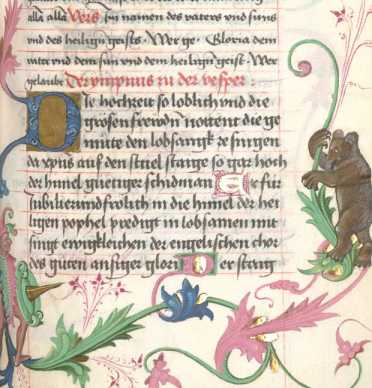 alla alla Vers Im namen des vaters vnd suns
vnd des heilign geists · Wer ge · Gloria dem
vater vnd dem sun vnd dem heilign geist · Wer
gelaubt Der ympnus in der vesper :
Die hochzeit so loblich vnd die
grosen frewden notent die ge
mutte den lobsangk ze singen
da xpus auf den stuel staige so gar hoch
der himel guetiger schidman Er fur
subilier und frolich in die himel der hei
ligen pophel predigt in lobsamen mit
singt ewigkleichen der engelischen chor
des guten ansiger glori Er staig